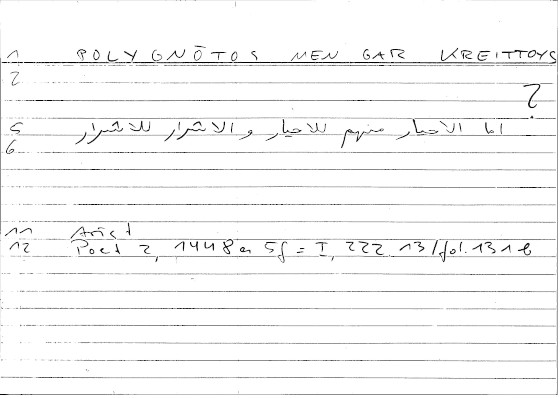 1 POLYGNŌTOS MEN GAR KREITTOYS
2
?
5 اما الاخيار منهم للاخيار و الاشرار للاشرار
6
11 Arist
12 Poet 2, 1448 a 5f = I, 222 13/fol. 131 b